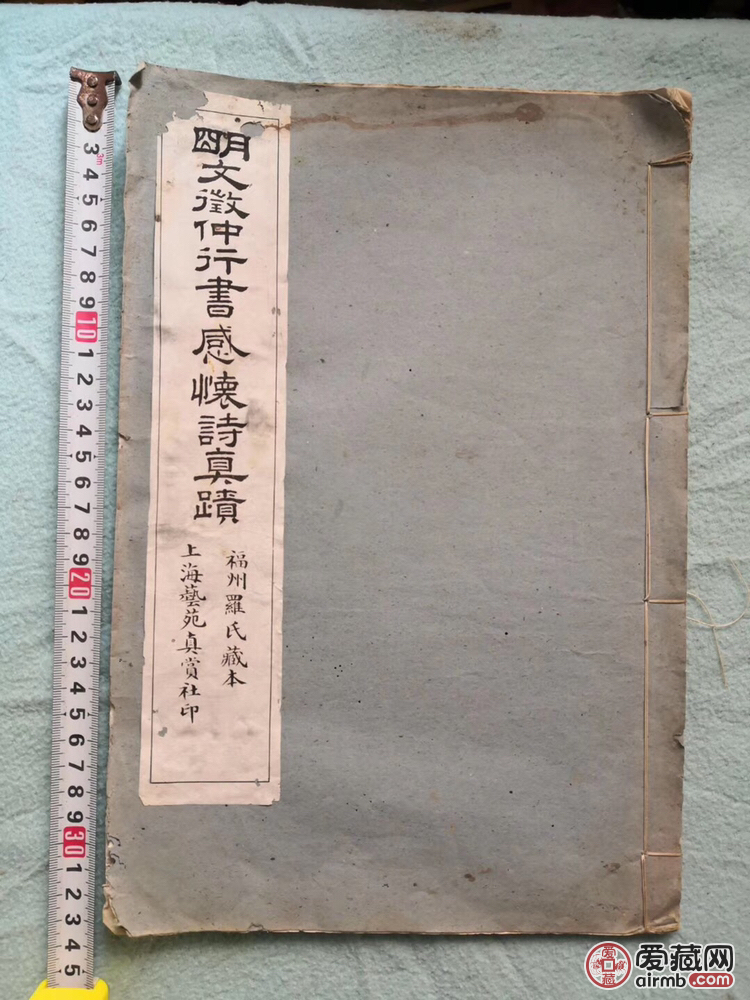 明文徵仲行書感懷詩真蹟
福州羅氏藏本
上海藝苑真賞社印
3
3m
4
5
6
7
8
9
10
1
2
3
4
5
6
7
8
9
20
1
2
3
4
5
6
7
8
9
30
1
2
3
4
5
爱藏网
airmb.com